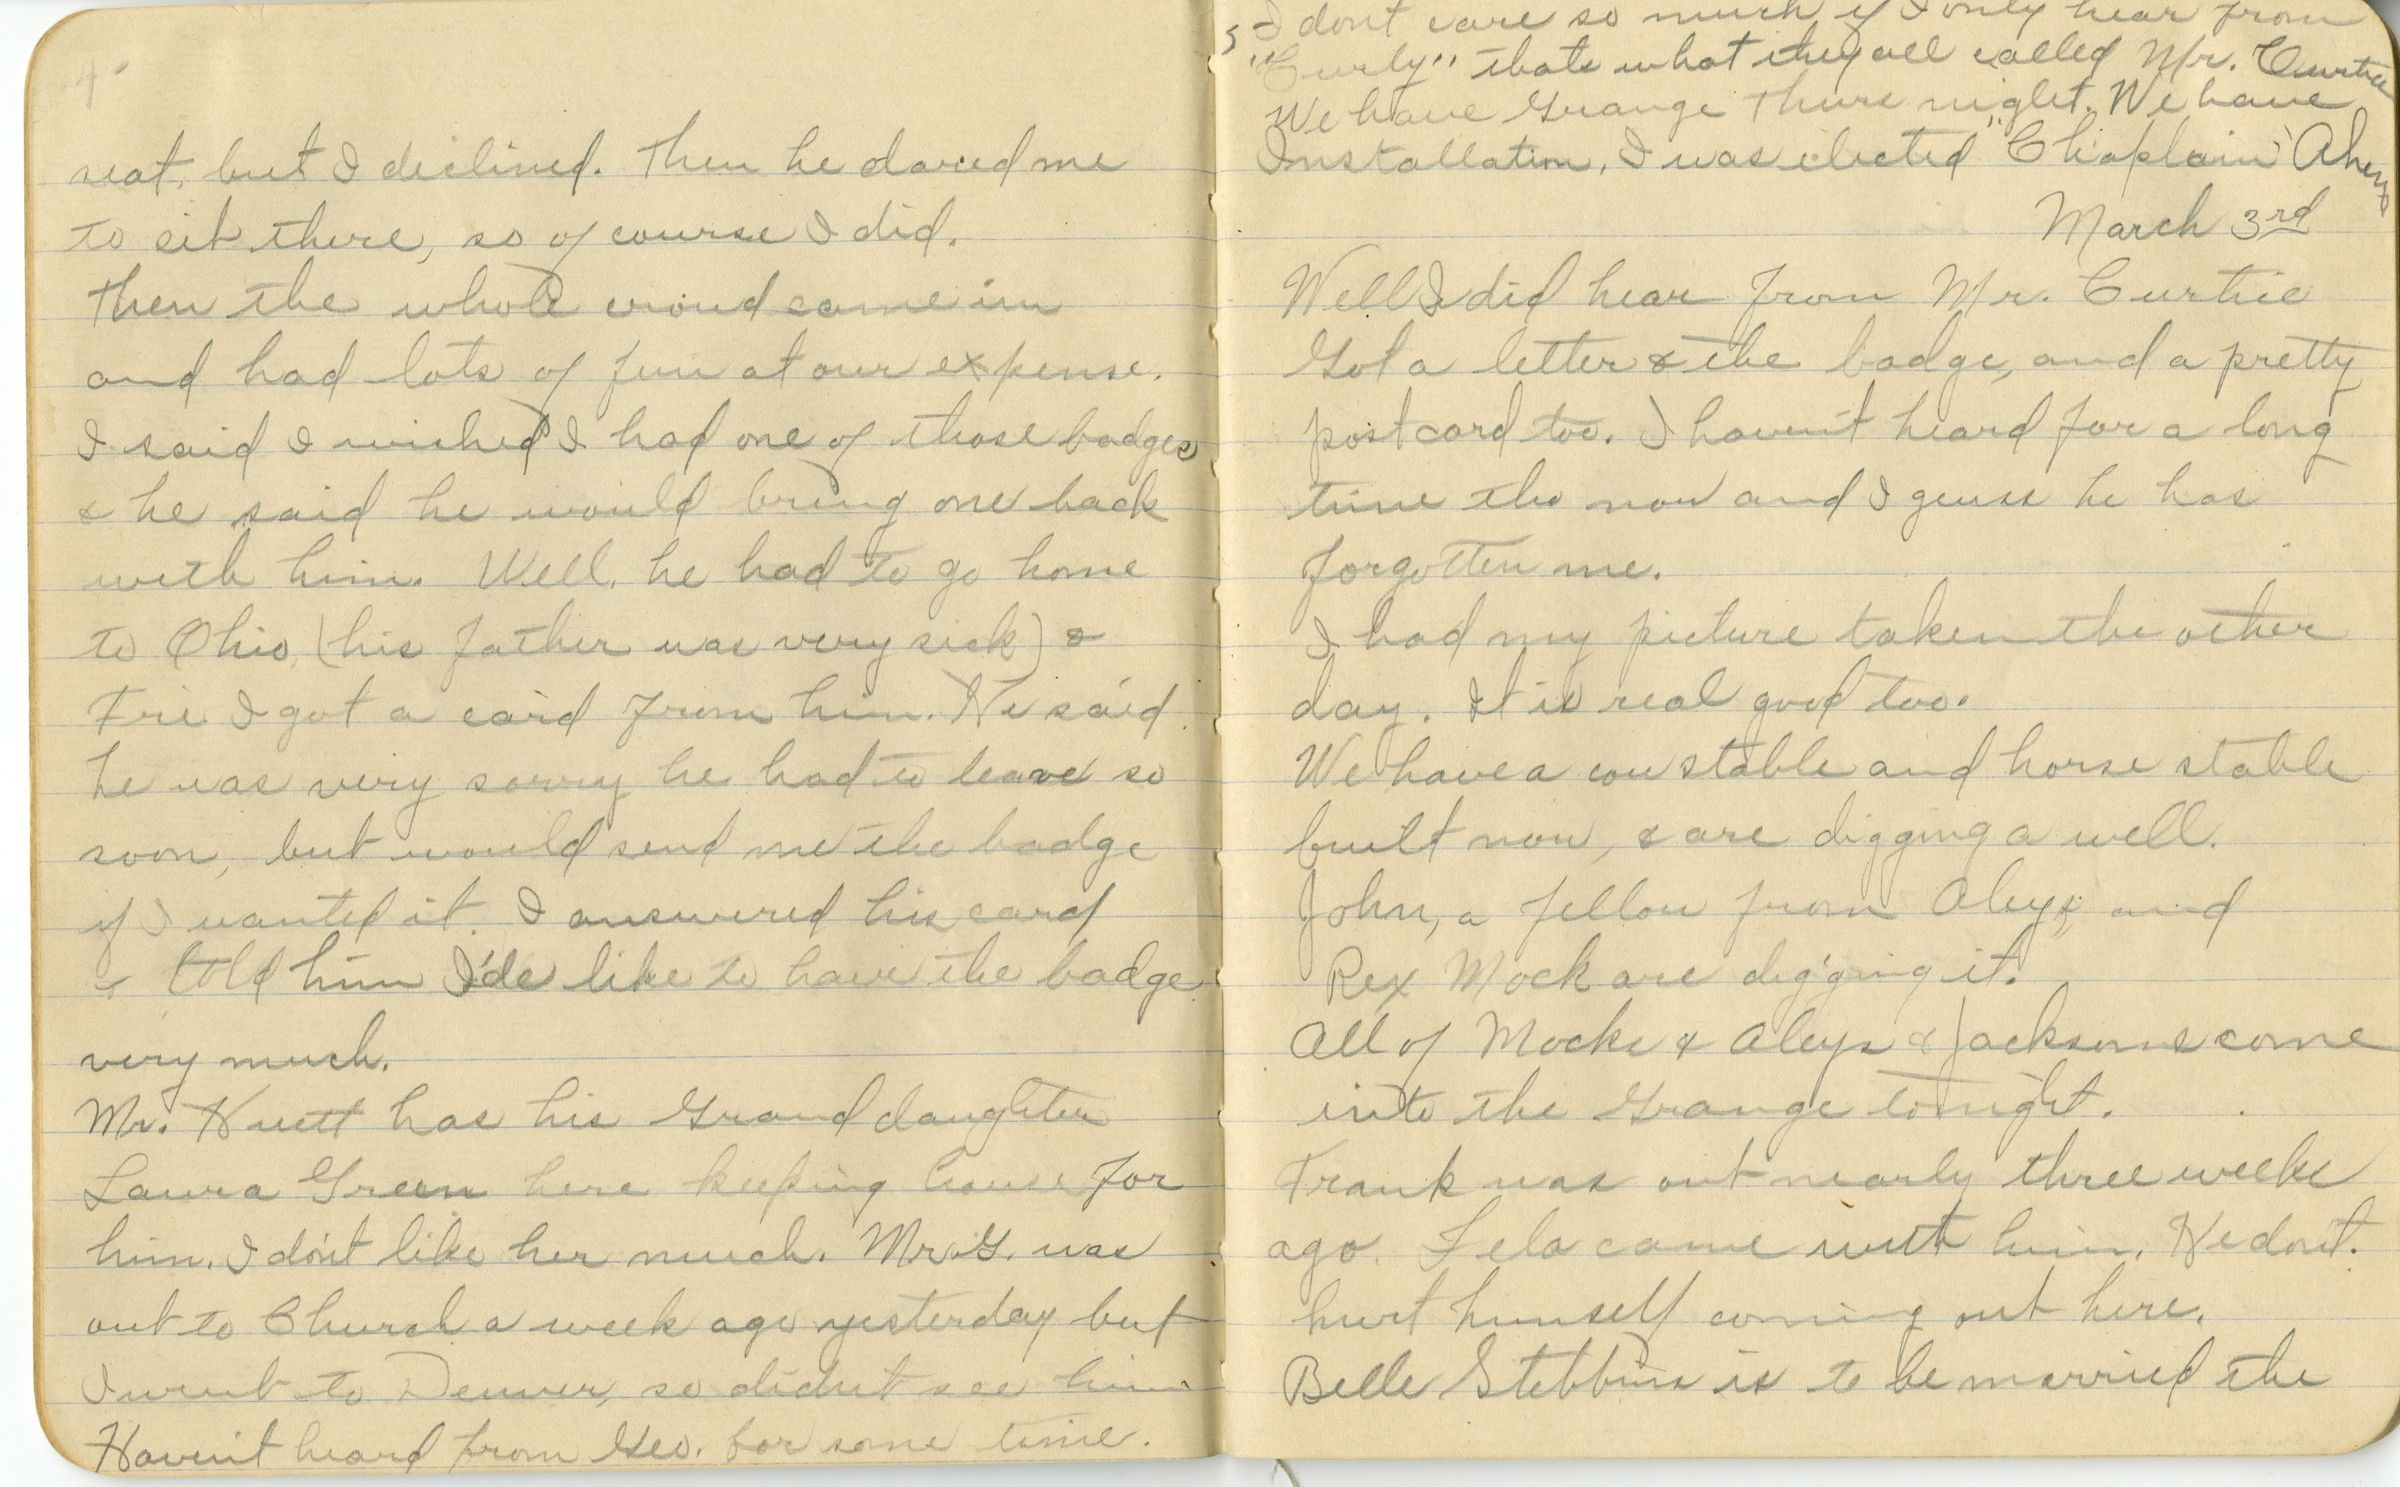 4.
seat, but I declined. Then he dared me
to sit there, so of course I did.
Then the whole crowd came in
and had lots of fun at our expense.
I said I wished I had one of those badges
& he said he would bring one back
with him. Well, he had to go home
to Ohio, (his father was very sick) &
Fri I got a card from him. He said
he was very sorry he had to leave so
soon, but would send me the badge
if I wanted it. I answered his card
& told him I'de like to have the badge
very much.
Mr. Huett has his Grand daughter
Laura Green here keeping house for
him. I don't like her much. Mr. G. was
out to Church a week ago yesterday but
I went to Denver, so didn't see him
Haven't heard from Geo. for some time.
5
I dont care so much if I only hear from
"Curly" thats what they all called Mr. Curtice
We have Grange Thurs night. We have
Installation. I was elected "Chaplain" Ahem
March 3rd
Well I did hear from Mr. Curtice
Got a letter & the badge, and a pretty
postcard too. I haven't heard for a long
time tho now and I guess he has
forgotten me.
I had my picture taken the other
day. It is real good too.
We have a cow stable and horse stable
built now, & are digging a well.
John, a fellow from Aleys, and
Rex Mock are digging it.
All of Mocks & Aleys & Jacksons come
into the Grange tonight.
Frank was out nearly three weeks
ago. Lela came with him. He don't.
hurt himself coming out here.
Belle Stebbins is to be married the